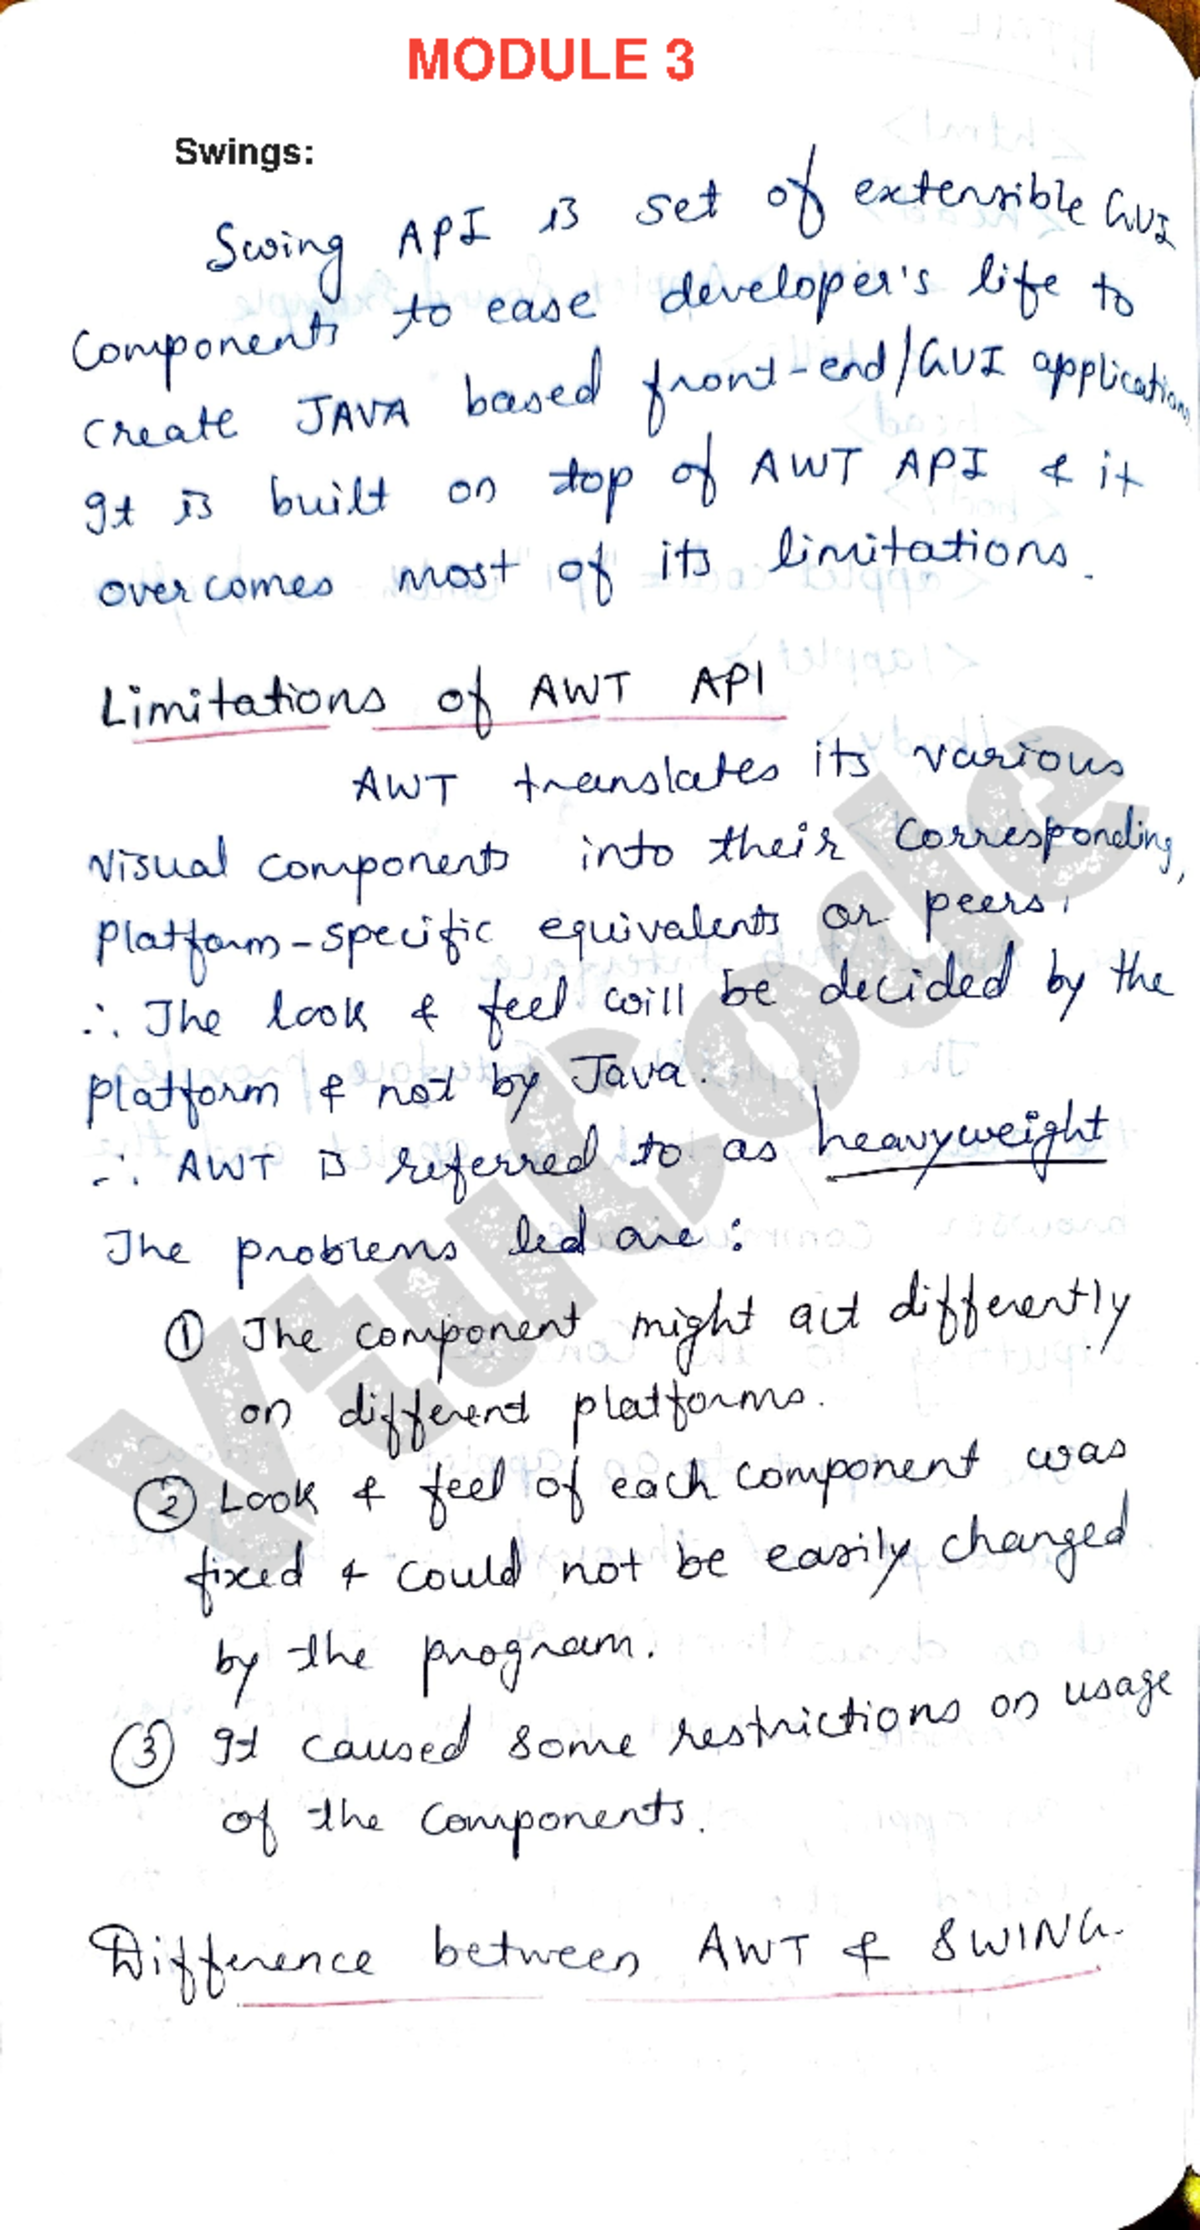 MODULE 3
Swings:
Swing API is set of extensible GUI
Components to ease developer's life to
create JAVA based front-end/GUI applications.
It is built on top of AWT API & it
overcomes most of its limitations.
Limitations of AWT API
AWT translates its various
visual components into their corresponding,
platform-specific equivalents or peers.
∴ The look & feel will be decided by the
platform & not by Java.
∴ AWT is referred to as heavyweight
The problems led are:
① The component might act differently
on different platforms.
② Look & feel of each component was
fixed & could not be easily changed
by the program.
③ It caused some restrictions on usage
of the components.
Difference between AWT & SWING.
VtuCode